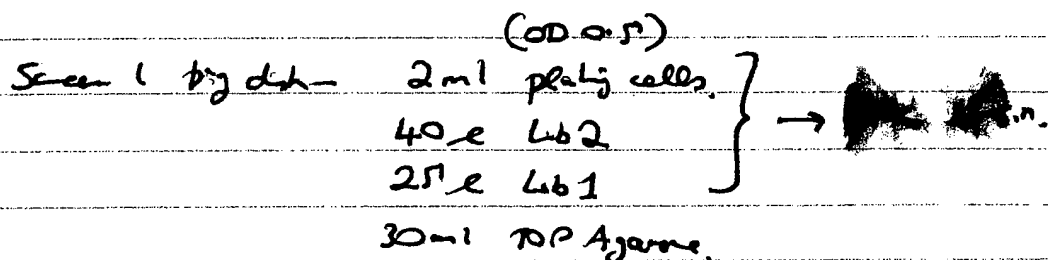 (OD 0.5)
Screen 1 big dish 2ml plating cells.
40 λ Lib 2
25 λ Lib 1
→
30ml TOP Agarose.